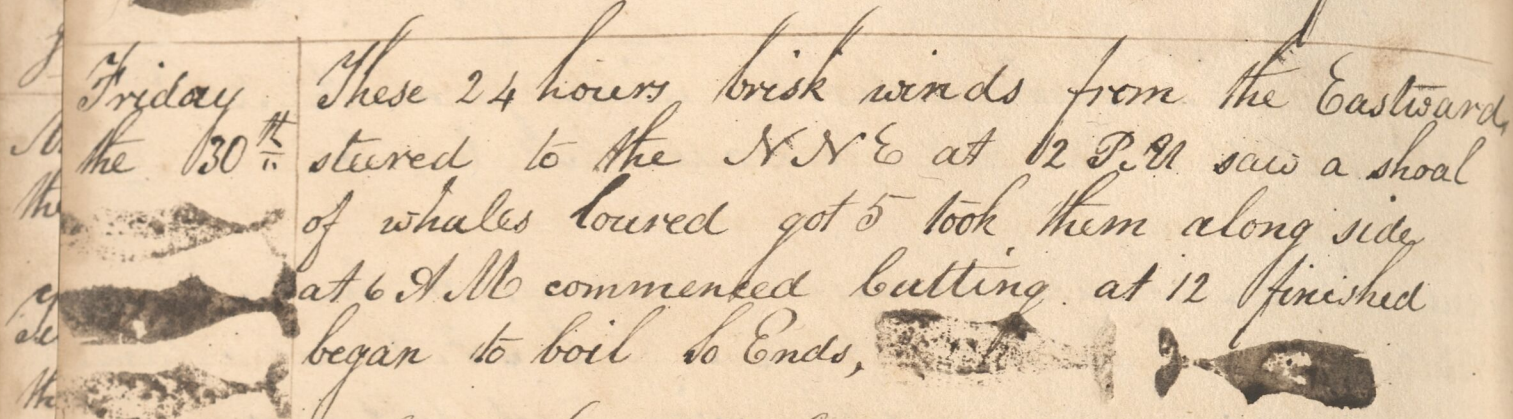 Friday
the 30th
These 24 hours brisk winds from the Eastward,
steered to the NNE at 2 P.M saw a shoal
of whales loured got 5 took them along side
at 6 A M commenced Cutting at 12 finished
began to boil So Ends,